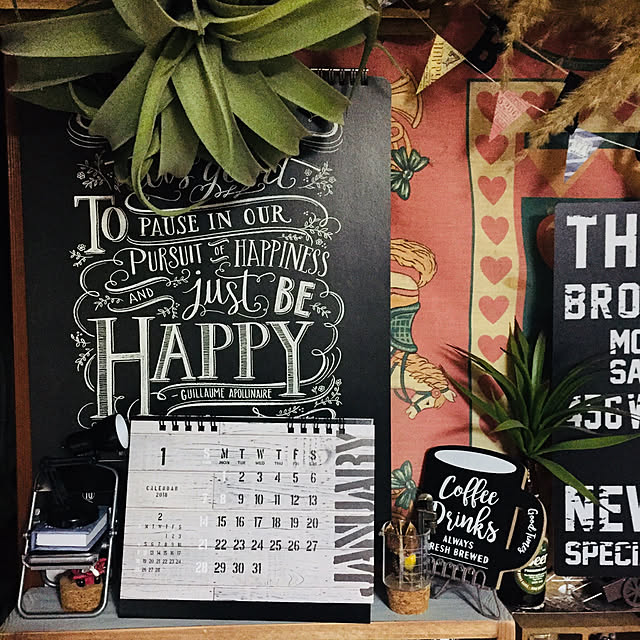 TO PAUSE IN OUR
PURSUIT OF HAPPINESS
AND just BE
HAPPY
- GUILLAUME APOLLINAIRE
1
CALENDAR
2018
2
S M T W T F S
MON TUE WED THU FRI SAT
1 2 3 4 5 6
7 8 9 10 11 12 13
14 15 16 17 18 19 20
21 22 23 24 25 26 27
28 29 30 31
JANUARY
Coffee
Drinks
ALWAYS
FRESH BREWED
Good Tasty
TH
BRO
MO
SA
456 W
NEW
SPECI